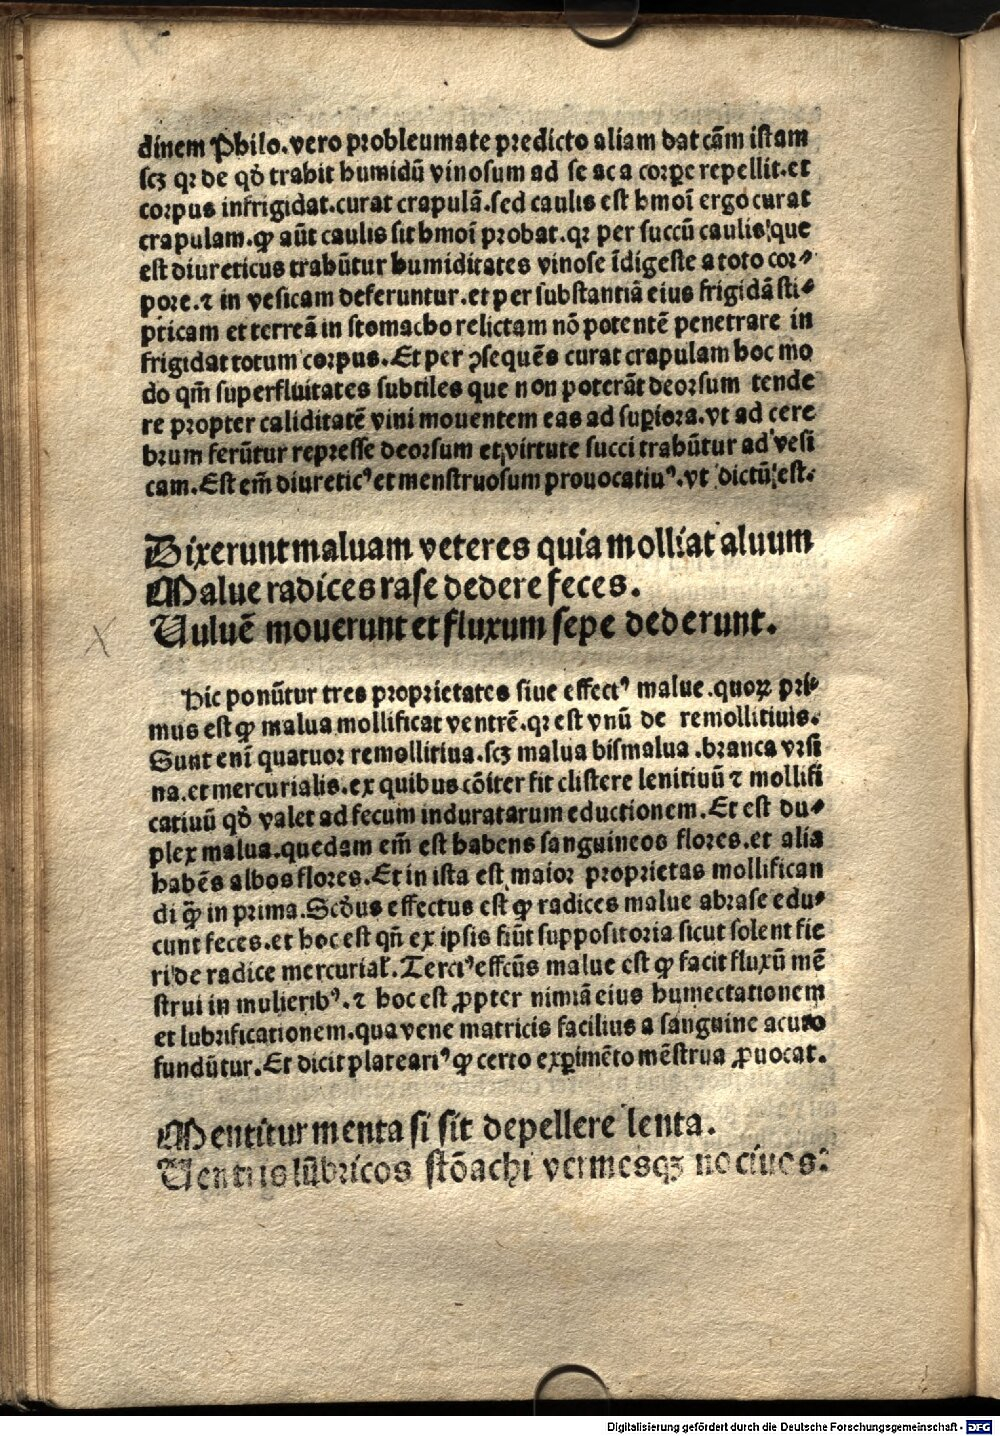 dinem Philo.vero probleumate predicto aliam dat cãm istam
scꝫ qꝛ de qḋ trahit humidũ vinosum ad se ac a corꝑe repellit.et
corpus infrigidat.curat crapulã.sed caulis est hmoĩ ergo curat
crapulam.ꝙ aũt caulis sit hmoĩ probat.qꝛ per succũ caulis que
est diureticus trahũtur humiditates vinose ĩdigeste a toto cor⸗
pore.⁊ in vesicam deferuntur.et per substantiã eius frigidã sti⸗
pticam et terreã in stomacho relictam nõ potentẽ penetrare in
frigidat totum corpus.Et per ꝯsequẽs curat crapulam hoc mo
do qm̃ superfluitates subtiles que non poterãt deorsum tende
re propter caliditatẽ vini mouentem eas ad suꝑiora.vt ad cere
brum ferũtur represse deorsum et virtute succi trahũtur ad vesi
cam.Est em̃ diureticꝰ et menstruosum prouocatiuꝰ.vt dictũ est.
Dixerunt maluam veteres quia molliat aluum
Malue radices rase dedere feces.
Uuluẽ mouerunt et fluxum sepe dederunt.
Hic ponũtur tres proprietates siue effectꝰ malue.quoꝝ pri⸗
mus est ꝙ malua mollificat ventrẽ.qꝛ est vnũ de remollitiuis.
Sunt enĩ quatuor remollitiua.scꝫ malua bismalua .branca vrsi
na.et mercurialis.ex quibus cõiter fit clistere lenitiuũ ⁊ mollifi
catiuũ qḋ valet ad fecum induratarum eductionem.Et est du⸗
plex malua.quedam em̃ est habens sanguineos flores.et alia
habẽs albos flores.Et in ista est maior proprietas mollifican
di q̃ꝫ in prima.Scḋus effectus est ꝙ radices malue abrase edu⸗
cunt feces.et hoc est qñ ex ipsis fiũt suppositoria sicut solent fie
ri de radice mercurial̃.Terciꝰ effcũs malue est ꝙ facit fluxũ mẽ
strui in mulieribꝰ.⁊ hoc est ꝓpter nimiã eius humectationem
et lubrificationem.qua vene matricis facilius a sanguine acuto
fundũtur.Et dicit plateariꝰ ꝙ certo exꝑimẽto mẽstrua ꝓuocat.
Mentitur menta si sit depellere lenta.
Uentris lũbricos stõachi vermesqꝫ nociuos.
Digitalisierung gefördert durch die Deutsche Forschungsgemeinschaft - DFG